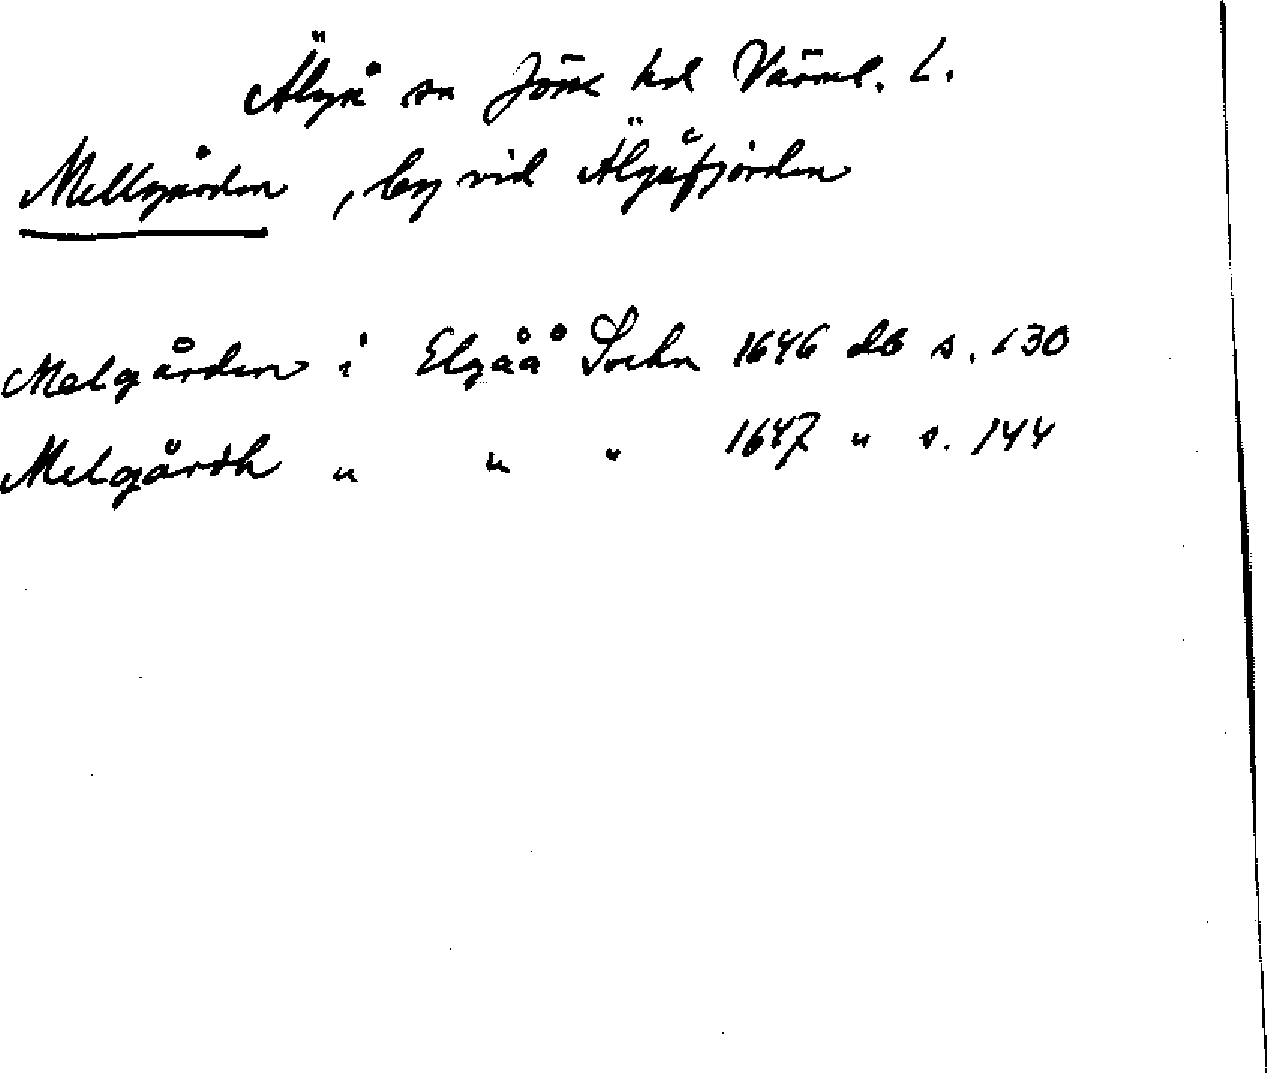 Älgå sn Jösse hd Värml. L.
Mellgården, by vid Älgåfjorden
Melgården i Elgåå Sochn 1646 db s. 130
Melgårdh " " " 1647 " s. 144